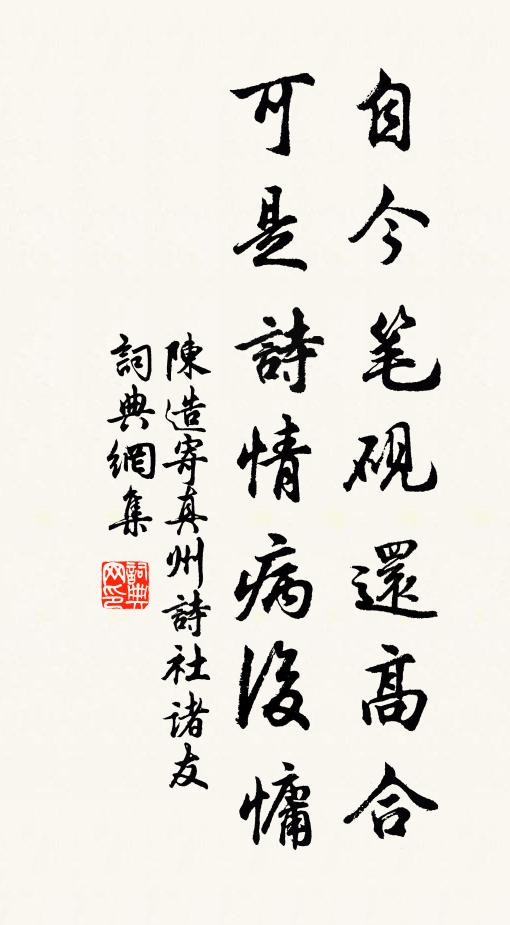 自今笔硯還高合
可是詩情病後慵
陳造寄真州詩社诸友
詞典網集
詞典网印